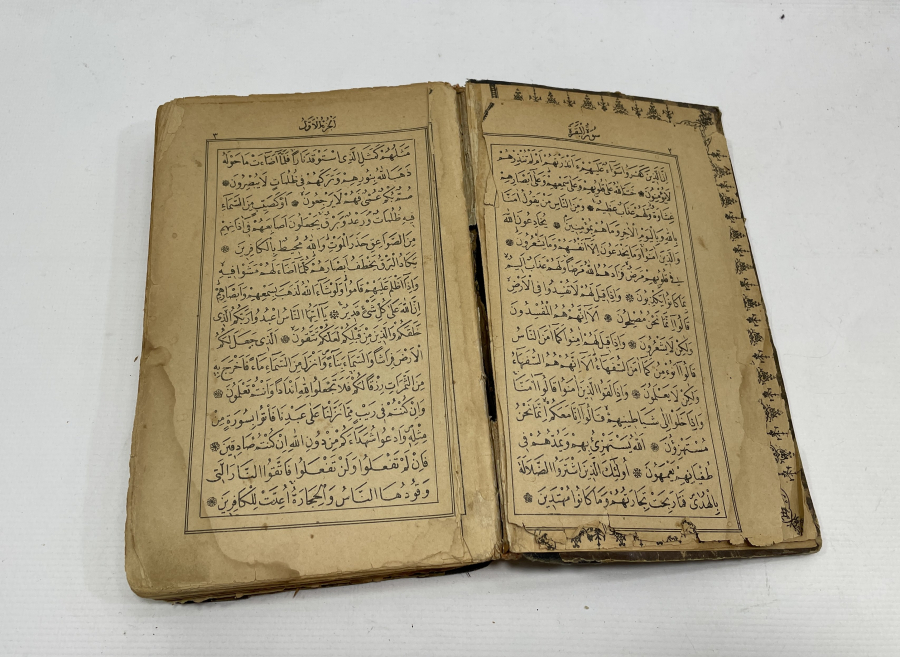 ٢
سورة البقرة
اِنَّ الَّذِينَ كَفَرُوا سَوَاءٌ عَلَيْهِمْ ءَاَنْذَرْتَهُمْ اَمْ لَمْ تُنْذِرْهُمْ
لَا يُؤْمِنُونَ ۞ خَتَمَ اللهُ عَلٰى قُلُوبِهِمْ وَعَلٰى سَمْعِهِمْ وَعَلٰى اَبْصَارِهِمْ
غِشَاوَةٌ وَلَهُمْ عَذَابٌ عَظِيمٌ ۞ وَمِنَ النَّاسِ مَنْ يَقُولُ اٰمَنَّا
بِاللهِ وَبِالْيَوْمِ الْاٰخِرِ وَمَا هُمْ بِمُؤْمِنِينَ ۞ يُخَادِعُونَ اللهَ
وَالَّذِينَ اٰمَنُوا وَمَا يَخْدَعُونَ اِلَّا اَنْفُسَهُمْ وَمَا يَشْعُرُونَ ۞
فِي قُلُوبِهِمْ مَرَضٌ فَزَادَهُمُ اللهُ مَرَضًا وَلَهُمْ عَذَابٌ اَلِيمٌ
بِمَا كَانُوا يَكْذِبُونَ ۞ وَاِذَا قِيلَ لَهُمْ لَا تُفْسِدُوا فِي الْاَرْضِ
قَالُوا اِنَّمَا نَحْنُ مُصْلِحُونَ ۞ اَلَا اِنَّهُمْ هُمُ الْمُفْسِدُونَ
وَلٰكِنْ لَا يَشْعُرُونَ ۞ وَاِذَا قِيلَ لَهُمْ اٰمِنُوا كَمَا اٰمَنَ النَّاسُ
قَالُوا اَنُؤْمِنُ كَمَا اٰمَنَ السُّفَهَاءُ اَلَا اِنَّهُمْ هُمُ السُّفَهَاءُ
وَلٰكِنْ لَا يَعْلَمُونَ ۞ وَاِذَا لَقُوا الَّذِينَ اٰمَنُوا قَالُوا اٰمَنَّا
وَاِذَا خَلَوْا اِلٰى شَيَاطِينِهِمْ قَالُوا اِنَّا مَعَكُمْ اِنَّمَا نَحْنُ
مُسْتَهْزِؤُنَ ۞ اَللهُ يَسْتَهْزِئُ بِهِمْ وَيَمُدُّهُمْ فِي
طُغْيَانِهِمْ يَعْمَهُونَ ۞ اُولٰئِكَ الَّذِينَ اشْتَرَوُا الضَّلَالَةَ
بِالْهُدٰى فَمَا رَبِحَتْ تِجَارَتُهُمْ وَمَا كَانُوا مُهْتَدِينَ ۞
الجزء الاول
٣
مَثَلُهُمْ كَمَثَلِ الَّذِي اسْتَوْقَدَ نَارًا فَلَمَّا اَضَاءَتْ مَا حَوْلَهُ
ذَهَبَ اللهُ بِنُورِهِمْ وَتَرَكَهُمْ فِي ظُلُمَاتٍ لَا يُبْصِرُونَ ۞
صُمٌّ بُكْمٌ عُمْيٌ فَهُمْ لَا يَرْجِعُونَ ۞ اَوْ كَصَيِّبٍ مِنَ السَّمَاءِ
فِيهِ ظُلُمَاتٌ وَرَعْدٌ وَبَرْقٌ يَجْعَلُونَ اَصَابِعَهُمْ فِي اٰذَانِهِمْ
مِنَ الصَّوَاعِقِ حَذَرَ الْمَوْتِ وَاللهُ مُحِيطٌ بِالْكَافِرِينَ ۞
يَكَادُ الْبَرْقُ يَخْطَفُ اَبْصَارَهُمْ كُلَّمَا اَضَاءَ لَهُمْ مَشَوْا فِيهِ
وَاِذَا اَظْلَمَ عَلَيْهِمْ قَامُوا وَلَوْ شَاءَ اللهُ لَذَهَبَ بِسَمْعِهِمْ وَاَبْصَارِهِمْ
اِنَّ اللهَ عَلٰى كُلِّ شَيْءٍ قَدِيرٌ ۞ يَا اَيُّهَا النَّاسُ اعْبُدُوا رَبَّكُمُ الَّذِي
خَلَقَكُمْ وَالَّذِينَ مِنْ قَبْلِكُمْ لَعَلَّكُمْ تَتَّقُونَ ۞ اَلَّذِي جَعَلَ لَكُمُ
الْاَرْضَ فِرَاشًا وَالسَّمَاءَ بِنَاءً وَاَنْزَلَ مِنَ السَّمَاءِ مَاءً فَاَخْرَجَ بِهِ
مِنَ الثَّمَرَاتِ رِزْقًا لَكُمْ فَلَا تَجْعَلُوا لِلّٰهِ اَنْدَادًا وَاَنْتُمْ تَعْلَمُونَ ۞
وَاِنْ كُنْتُمْ فِي رَيْبٍ مِمَّا نَزَّلْنَا عَلٰى عَبْدِنَا فَأْتُوا بِسُورَةٍ مِنْ
مِثْلِهِ وَادْعُوا شُهَدَاءَكُمْ مِنْ دُونِ اللهِ اِنْ كُنْتُمْ صَادِقِينَ ۞
فَاِنْ لَمْ تَفْعَلُوا وَلَنْ تَفْعَلُوا فَاتَّقُوا النَّارَ الَّتِي
وَقُودُهَا النَّاسُ وَالْحِجَارَةُ اُعِدَّتْ لِلْكَافِرِينَ ۞